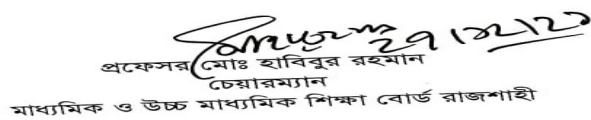 ২৭/১২/২১
প্রফেসর মোঃ হাবিবুর রহমান
চেয়ারম্যান
মাধ্যমিক ও উচ্চ মাধ্যমিক শিক্ষা বোর্ড রাজশাহী